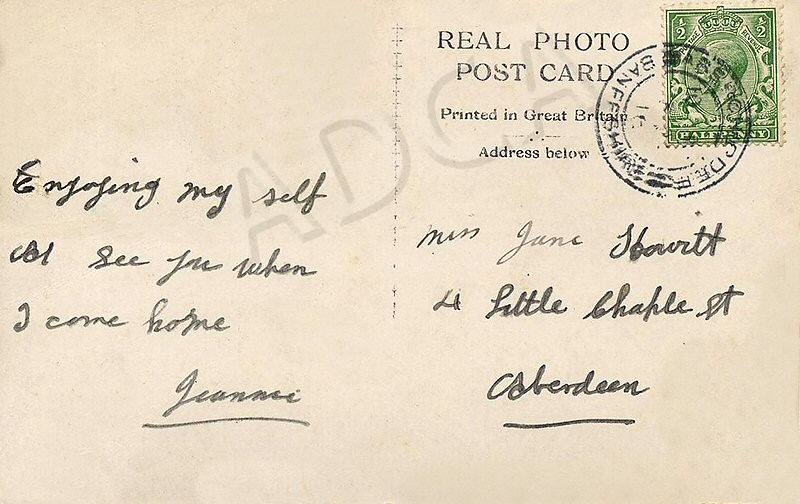 REAL PHOTO
POST CARD
Printed in Great Britain
Address below
1/2 1/2
HALFPENNY
BANFFSHIRE
ADCA
Enjoying my self
see you when
I come home
Jeannie
Miss Jane Howitt
4 Little Chaple St
Aberdeen